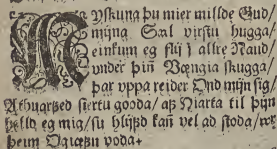 MYskuna þu mier milde Gud/
mijna Sæl virstu hugga/
einkum eg flij j allre Naud/
vnder þiñ Vængia skugga/
þar vppa reider Ønd mijn sig/
Athuarßed giertu gooda/ aß Hiarta til þijn
helld eg mig/ su hlijfd kañ vel ad stoda/ vor
heim Ogiæfu voda.